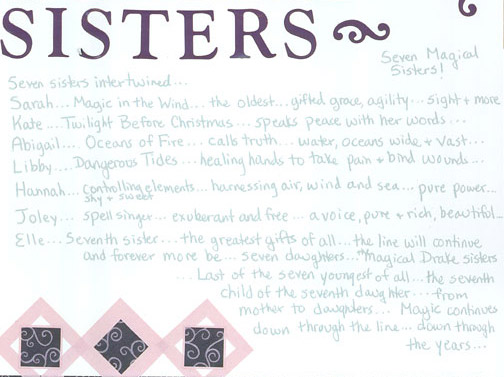 SISTERS
Seven Magical
Sisters!
Seven sisters intertwined...
Sarah... Magic in the Wind... the oldest... gifted grace, agility... sight + more
Kate... Twilight Before Christmas... speaks peace with her words...
Abigail... Oceans of Fire... calls truth... water, oceans wide + vast...
Libby... Dangerous Tides... healing hands to take pain + bind wounds...
Hannah... controlling elements... harnessing air, wind and sea... pure power...
shy + sweet
Joley... spell singer... exuberant and free... a voice, pure + rich, beautiful...
Elle... Seventh sister... the greatest gifts of all... the line will continue
and forever more be... seven daughters... magical Drake sisters
... Last of the seven youngest of all... the seventh
child of the seventh daughter.... from
mother to daughters... Magic continues
down through the line... down through
the years...